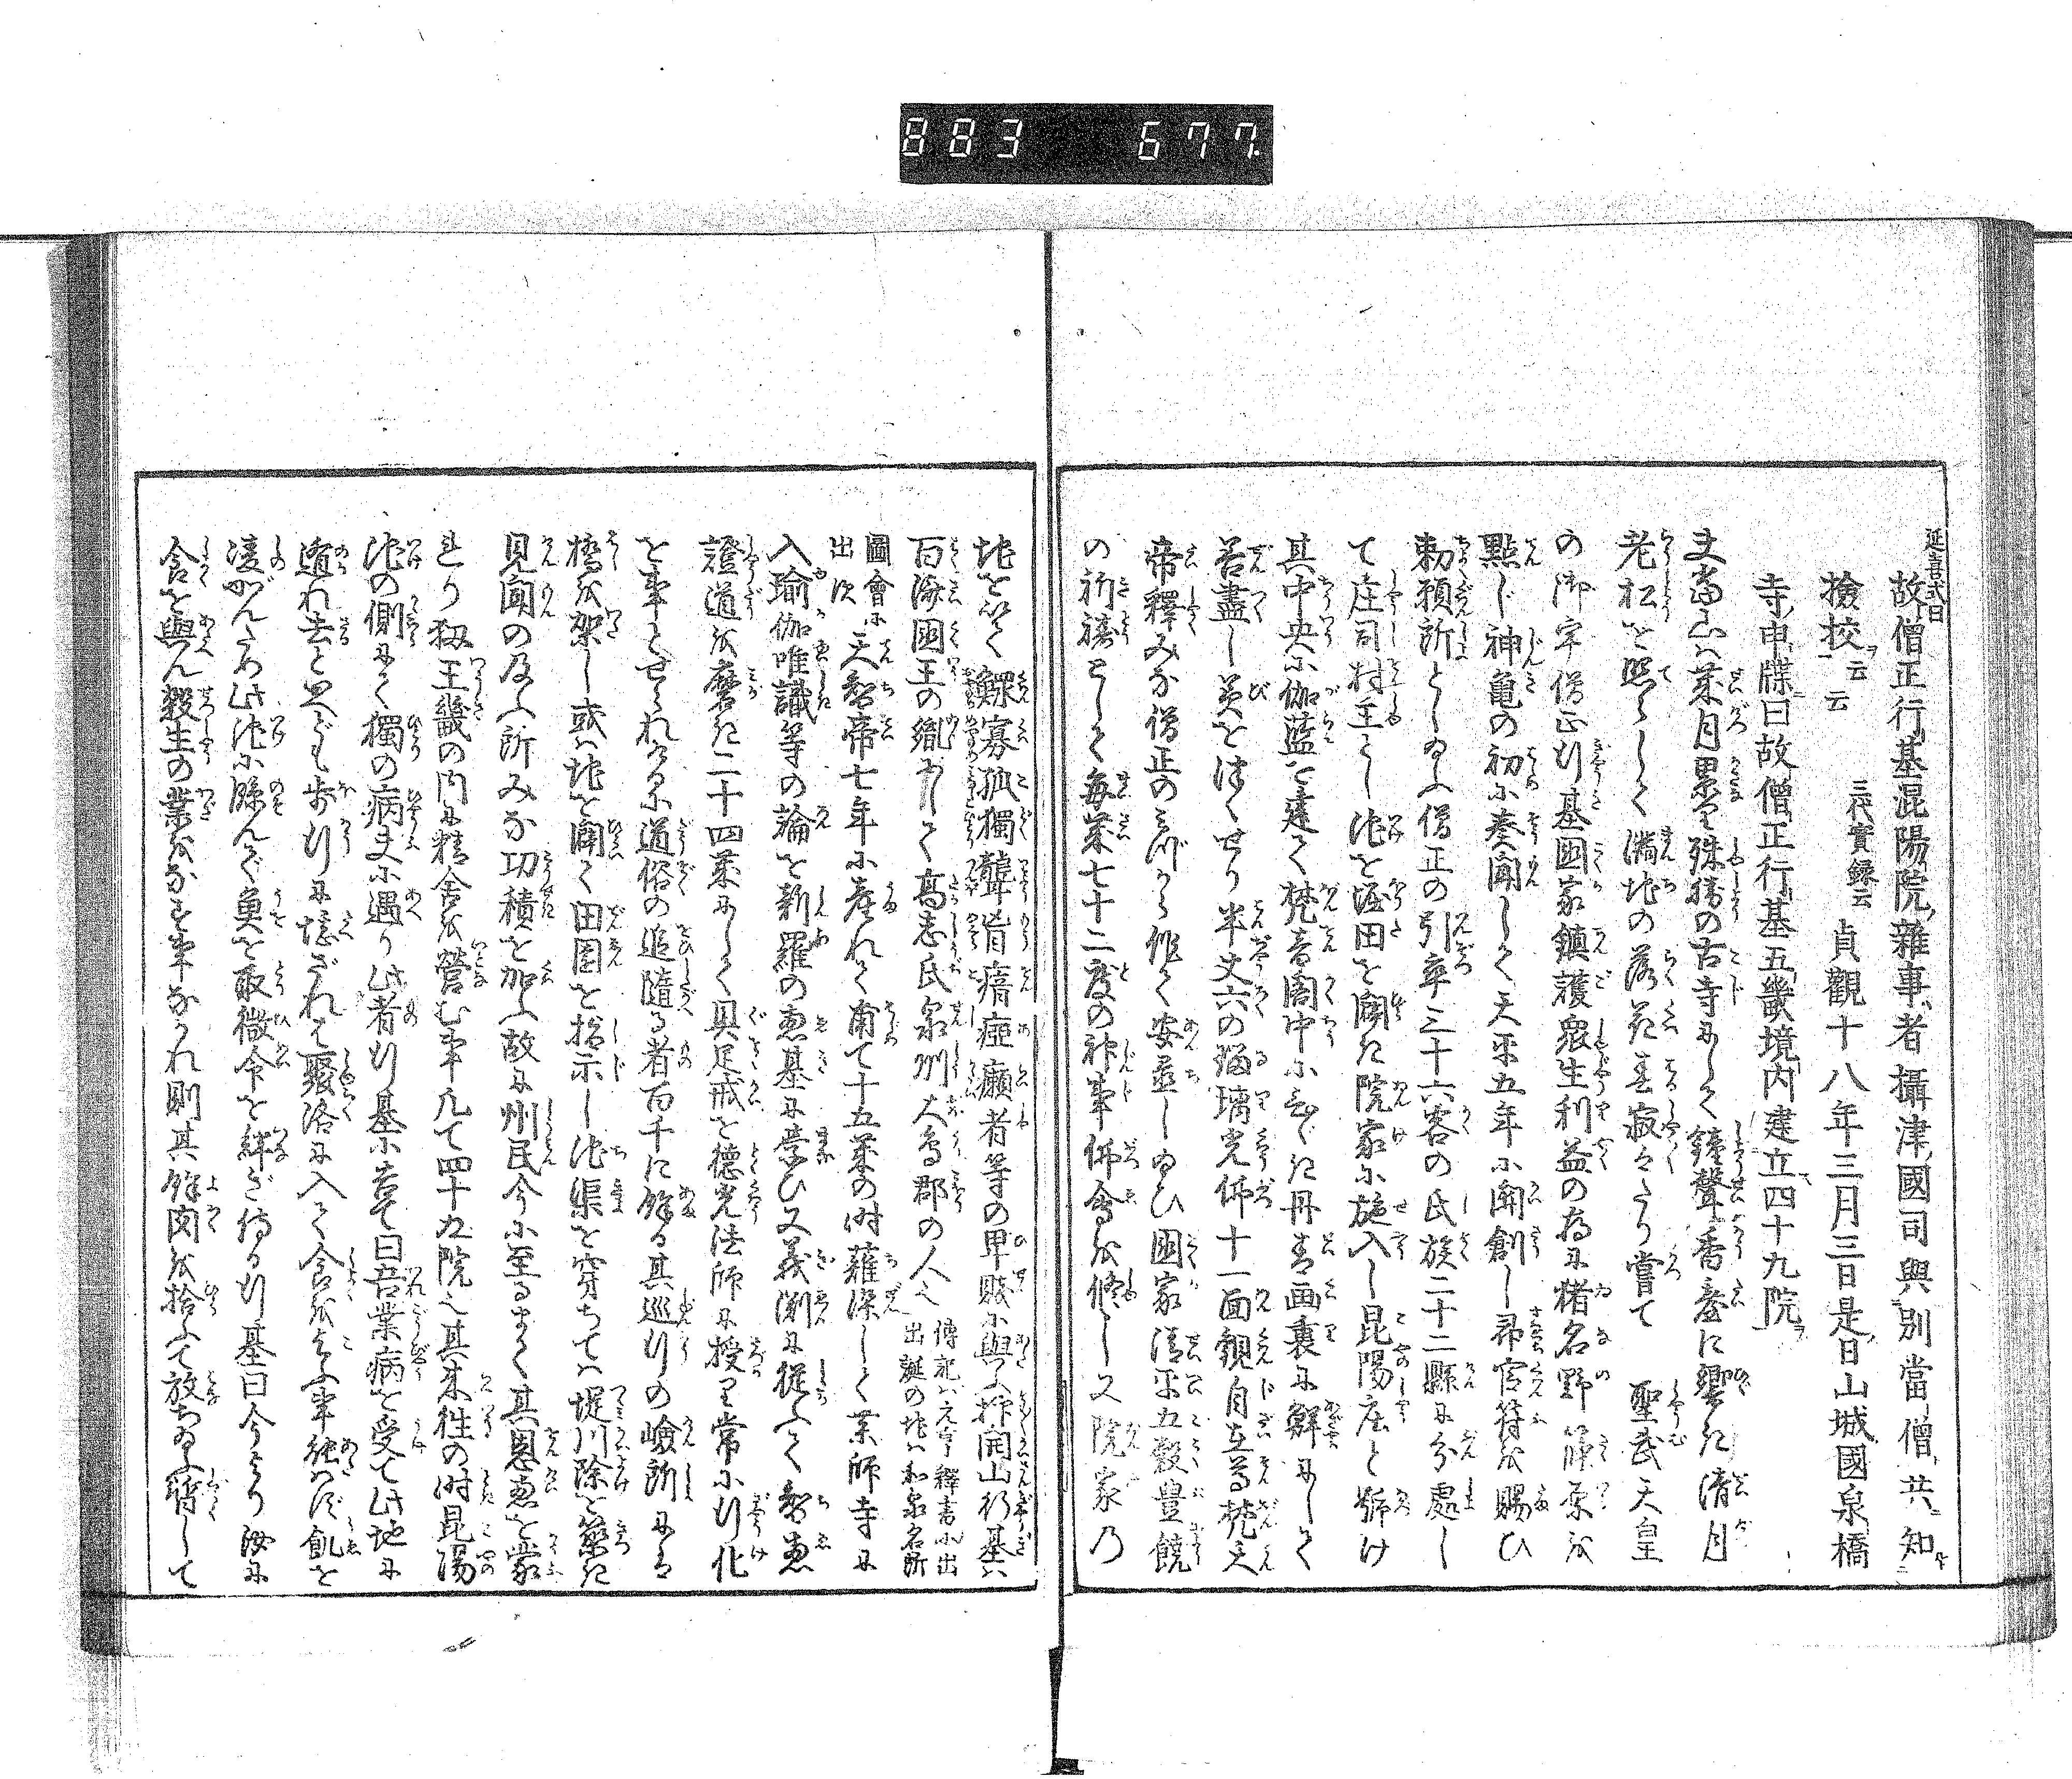 883 677.
延喜式曰
故僧正行基混陽院雑事者攝津國司與別當僧共知
撿挍云云 三代實録云 貞觀十八年三月三日是日山城國泉橋
寺申牒曰故僧正行基五畿境内建立四十九院
夫當山ハ菜月累て殊勝の古寺にして鐘聲香臺に響き清月
老松を照らして満地の落花春寂々たり嘗て 聖武天皇
の御宇僧正行基国家鎮護衆生利益の為に猪名野笹原を
點じ神亀の初に奏聞して天平五年に開創し官符を賜ひ
勅願所としゐふ僧正の引率三十六客の氏族二十二縣に分處し
て庄司村主とし池を渥田を闢き院家に施入し昆陽庄と號け
其中央に伽藍を建て梵音閣中に丹青画裏に鮮にして
善盡し美を盡くせり半丈六の瑠璃光佛十一面観自在尊梵天
帝釋みな僧正のミづから作て安置しゐひ国家清平五穀豊饒
の祈祷として毎菜七十二度の神事佛會を修し又院家乃
地を以て鰥寡孤獨聾盲瘖瘂癩者等の卑賤に與ふ抑開山行基ハ
百済國王の胤にして高志氏泉州大鳥郡の人也 傳記ハ元亨釋書に出 出誕の地ハ和泉名所
圖會に出次 天智帝七年に産れて甫て十五菜の時薙染して薬師寺に
入瑜伽唯識等の論を新羅の恵基に學ひ又義渕に従ふて智恵
證道を磨き二十四菜にして具足戒を徳光法師に授り常に行化
を事とせられるに道俗の追随る者百千に餘る其巡行の嶮所には
橋を架し或ハ地を開て田園を指示し池渠を穿ちてハ堤川除を築き
見聞の及ふ所みな功積を加ふ故に州民今に至るまて其恩恵を蒙
れり王畿の内に精舎を營む事凡て四十九院也其来徃の時昆陽
池の側にて獨の病夫に遇り此者行基に告て曰吾業病を受て此地に
遁れ去と思へども歩行に憶ざれは聚洛に入て食を乞ふ事能ハず飢を
凌がんため此池に臨んで魚を取微命を絆ぎ侍る行基曰今より汝に
食を與ん殺生の業をなす事なかれ則其餘肉を拾ふて放ちゐふ誓して